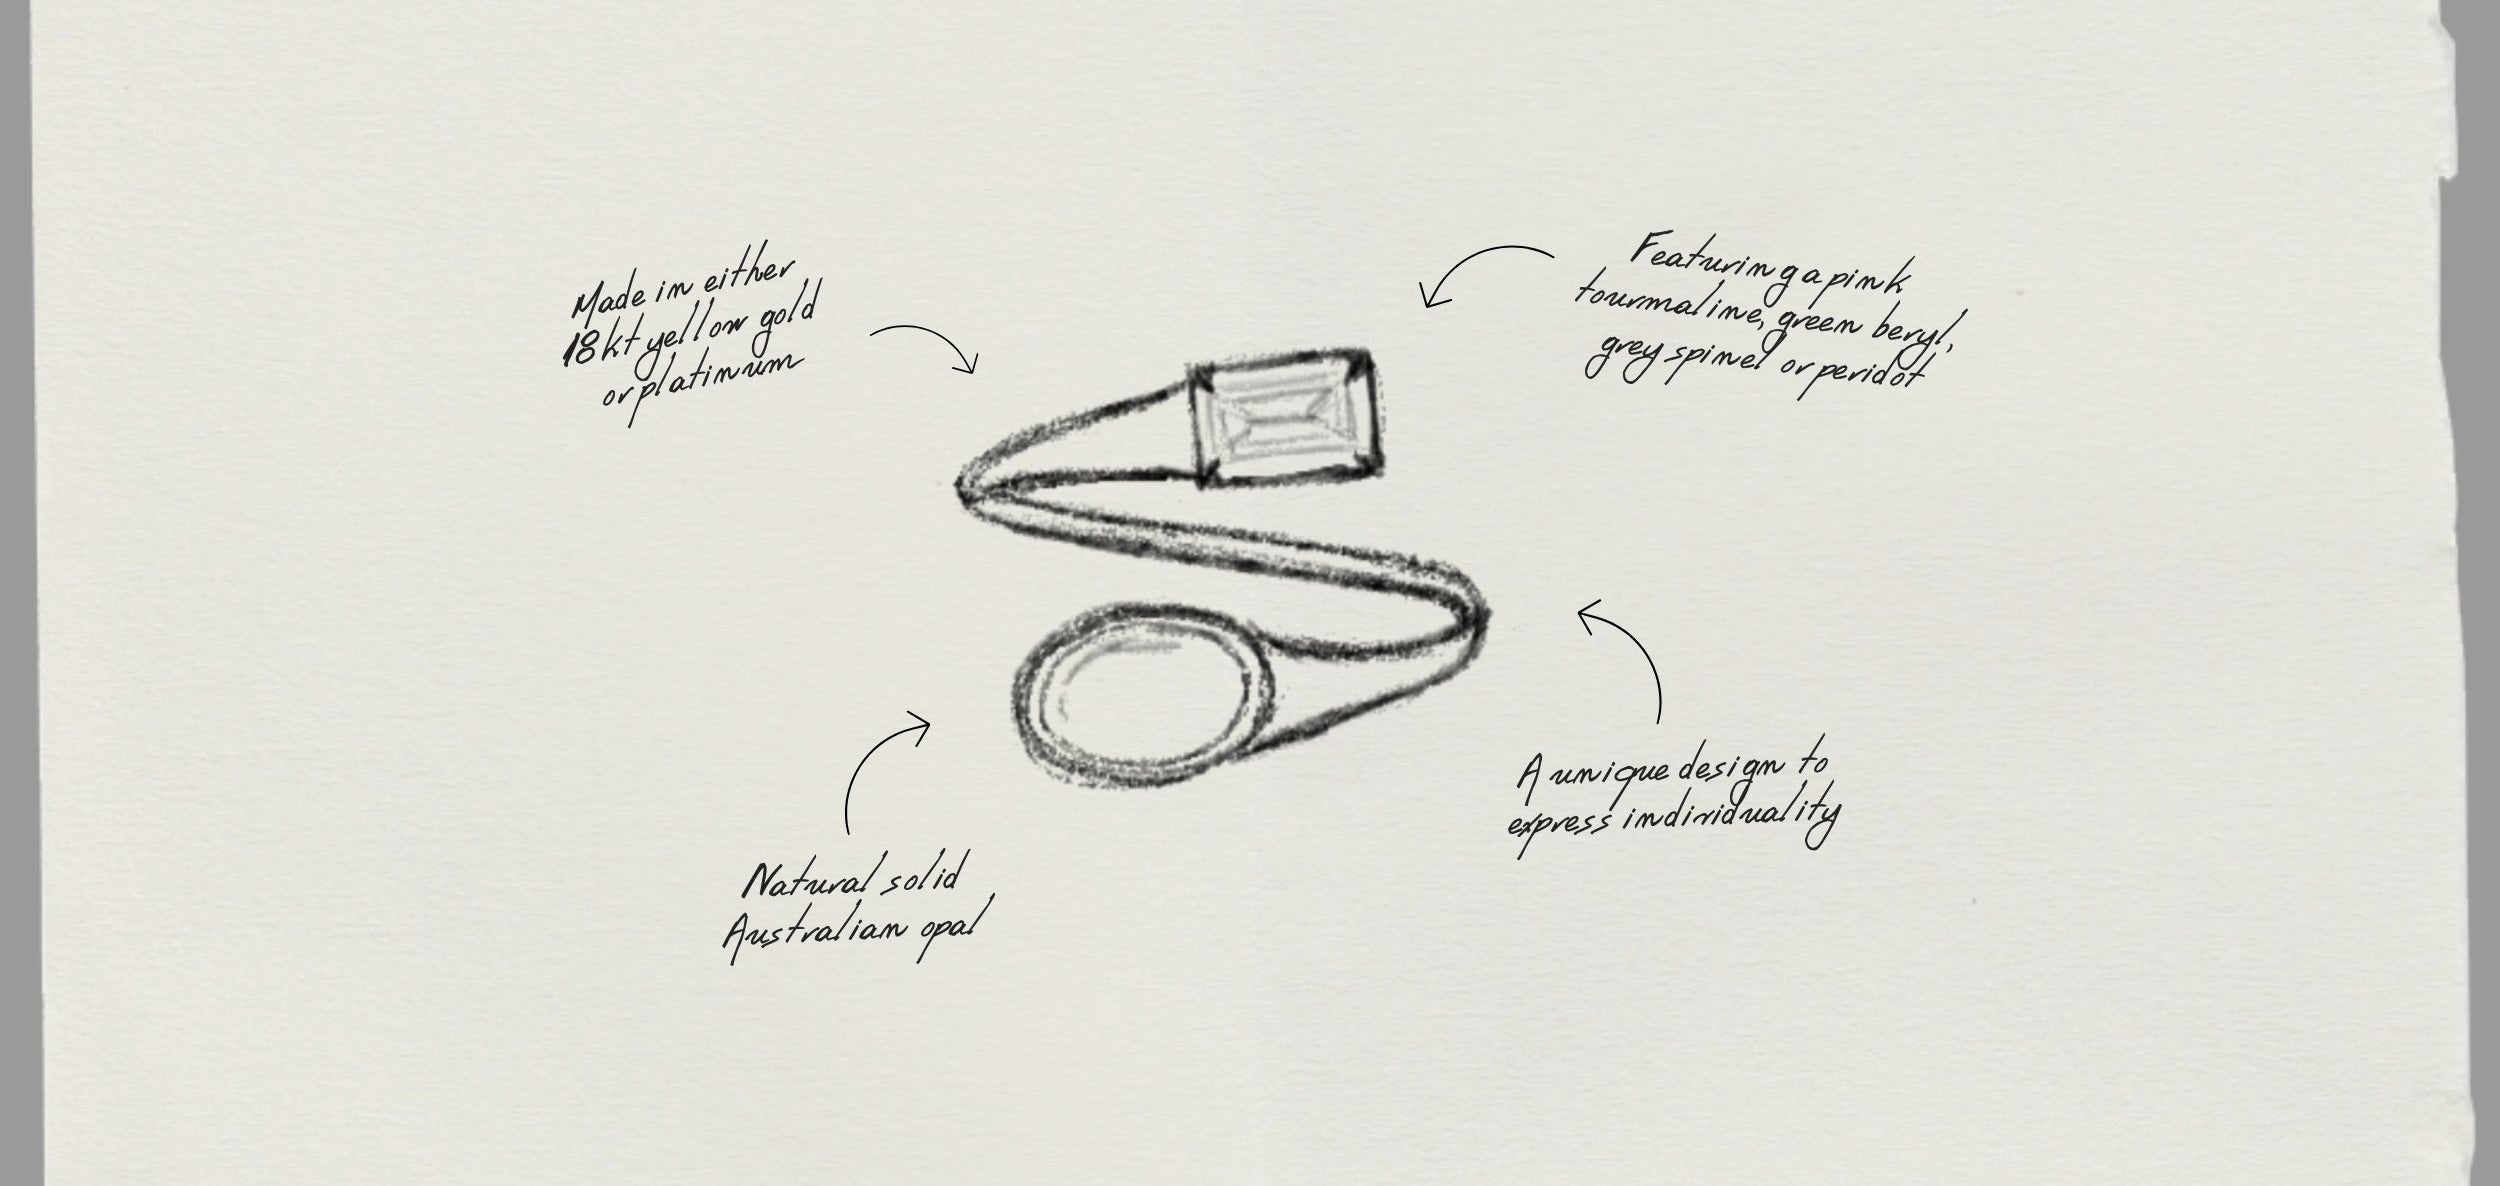 Made in either
18kt yellow gold
or platinum
Featuring a pink
tourmaline, green beryl,
grey spinel or peridot
A unique design to
express individuality
Natural solid
Australian opal